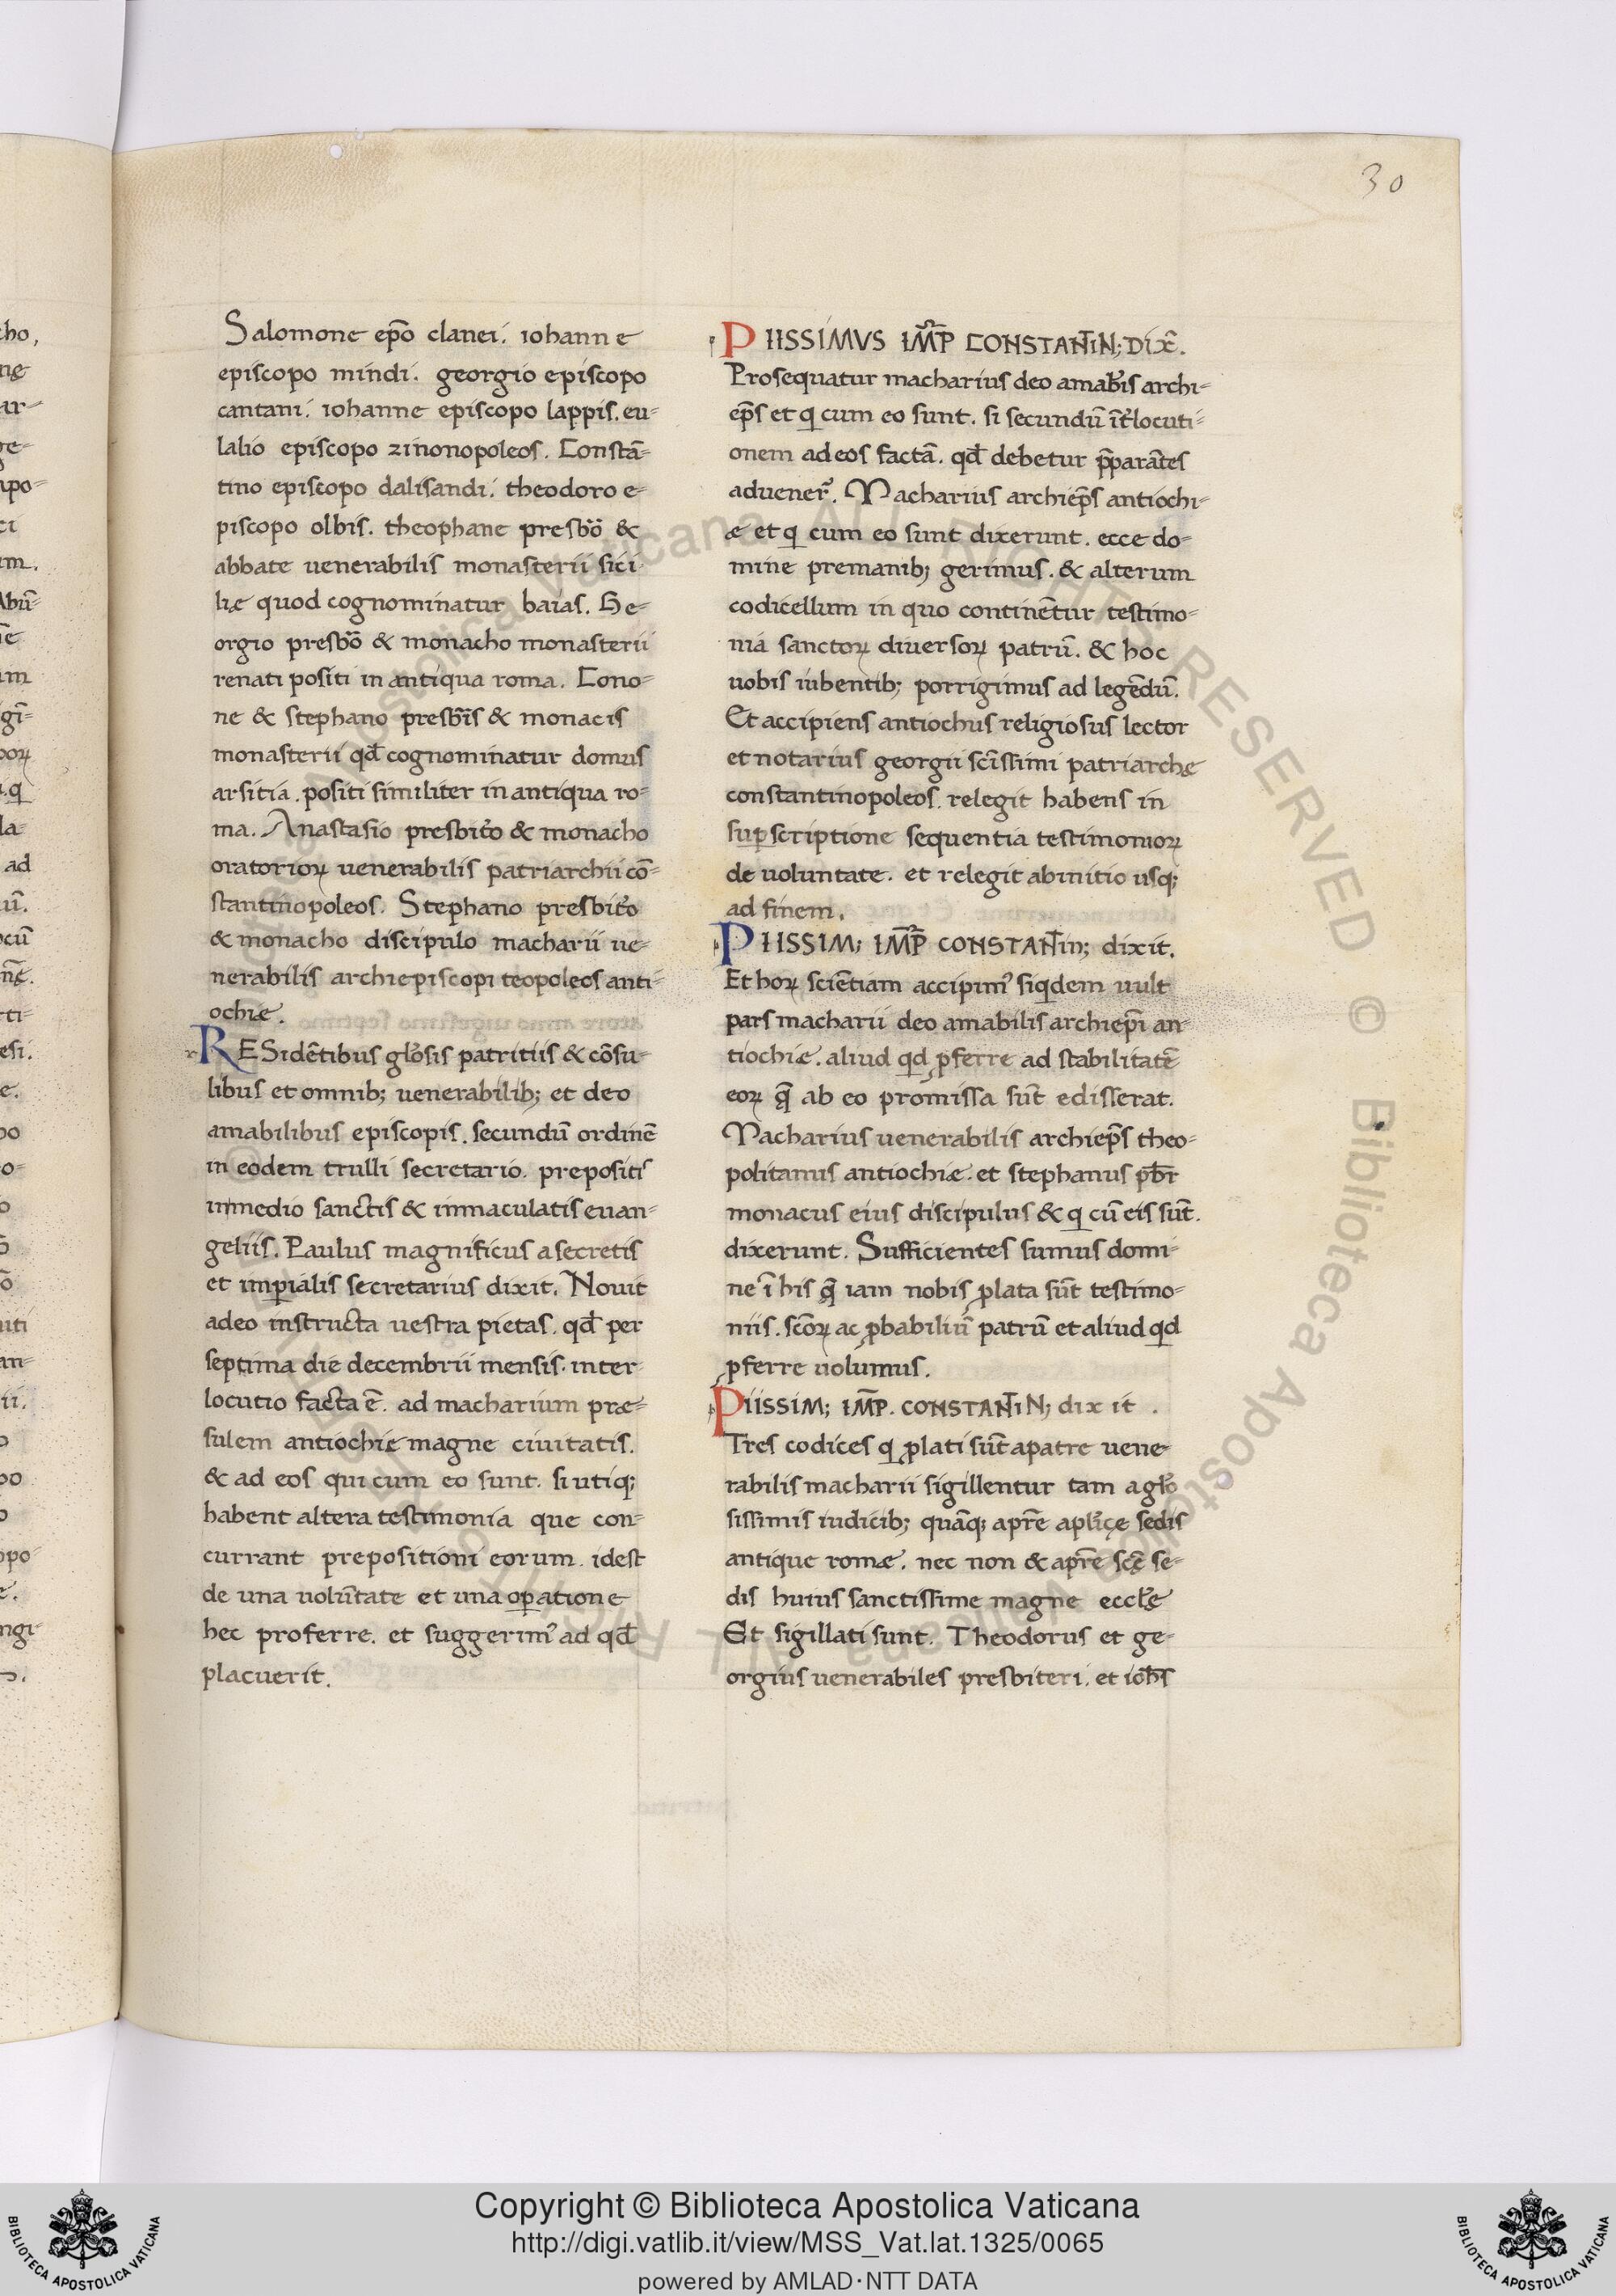 30
Salomone ep̅o clanei. iohanne
episcopo mindi. georgio episcopo
cantani. iohanne episcopo lappis. eu-
lalio episcopo zinonopoleos. Constā-
tino episcopo dalisandi. theodoro e-
piscopo olbis. theophane presbr̅o &
abbate uenerabilis monasterii sici
liæ quod cognominatur baias. Ge-
orgio presbr̅o & monacho monasterii
renati positi in antiqua roma. Cono-
ne & stephano presbr̅is & monacis
monasterii qd̅ cognominatur domus
arsitia. positi similiter in antiqua ro-
ma. Anastasio presbit̅o & monacho
oratorioꝝ uenerabilis patriarchii cō-
stantinopoleos. Stephano presbit̅o
& monacho discipulo macharii ue-
nerabilis archiepiscopi teopoleos anti-
ochiæ.
RESidētibus glo̅sis patritiis & cōsu-
libus et omnib; uenerabilib; et deo
amabilibus episcopis. secundū ordinē
in eodem trulli secretario. prepositis
inmedio sanctis & inmaculatis euan-
geliis. Paulus magnificus a secretis
et imꝑialis secretarius dixit. Nouit
adeo instructa uestra pietas. qd̅ per
septima die decembrii mensis. inter-
locutio facta ē. ad macharium præ-
sulem antiochiæ magne ciuitatis.
& ad eos qui cum eo sunt. si utiq;
habent altera testimonia que con-
currant prepositioni eorum. idest
de una volūtate et una oꝑatione
hec proferre. et suggerimꝰ ad qd̅
placuerit.
PIISSIMVS IM̅P̅ CONSTANT̅IN; DIX̅.
Prosequatur macharius deo amab̅is archi-
ep̅s et q cum eo sunt. si secundū īt̅locuti-
onem ad eos factā. qd̅ debetur p̅parātes
aduener̅. Macharius archiep̅s antiochi-
æ et q cum eo sunt dixerunt. ecce do-
mine premanib; gerimus. & alterum
codicellum in quo continētur testimo-
nia sanctoꝝ diuersoꝝ patrū. & hoc
uobis iubentib; porrigimus ad legēdū.
Et accipiens antiochus religiosus lector
et notarius georgii sc̅issimi patriarchę
constantinopoleos. relegit habens in
suꝑscriptione sequentia testimonioꝝ
de uoluntate. et relegit abinitio usq;
ad finem.
PIISSIM; IM̅P̅ CONSTANT̅in; dixit.
Et hoꝝ sciētiam accipimꝰ siqdem uult
pars macharii deo amabilis archiep̅i an-
tiochiæ. aliud qd ꝓferre ad stabilitatē
eoꝝ q̅ ab eo promissa sūt edisserat.
Macharius uenerabilis archiep̅s theo-
politanus antiochiæ. et stephanus pb̅r
monacus eius discipulus & q cū eis sūt.
dixerunt. Sufficientes sumus domi-
ne ī his q̅ iam nobis ꝓlata sūt testimo-
niis. sc̅oꝝ ac ꝓbabiliū patrū et aliud qd
ꝓferre uolumus.
PiiSSIM; IM̅P. CONSTANT̅iN; dixit.
Tres codices q ꝓlati sūt apatre uene-
rabilis macharii sigillentur tam a glo̅
sissimis iudicib; quāq; apr̅e apl̅icę sedis
antique romæ. nec non & apr̅e sc̅ę se-
dis huius sanctissime magne eccl̅ę
Et sigillati sunt. Theodorus et ge-
orgius uenerabiles presbiteri. et ioh̅s
Copyright © Biblioteca Apostolica Vaticana
http://digi.vatlib.it/view/MSS_Vat.lat.1325/0065
powered by AMLAD·NTT DATA